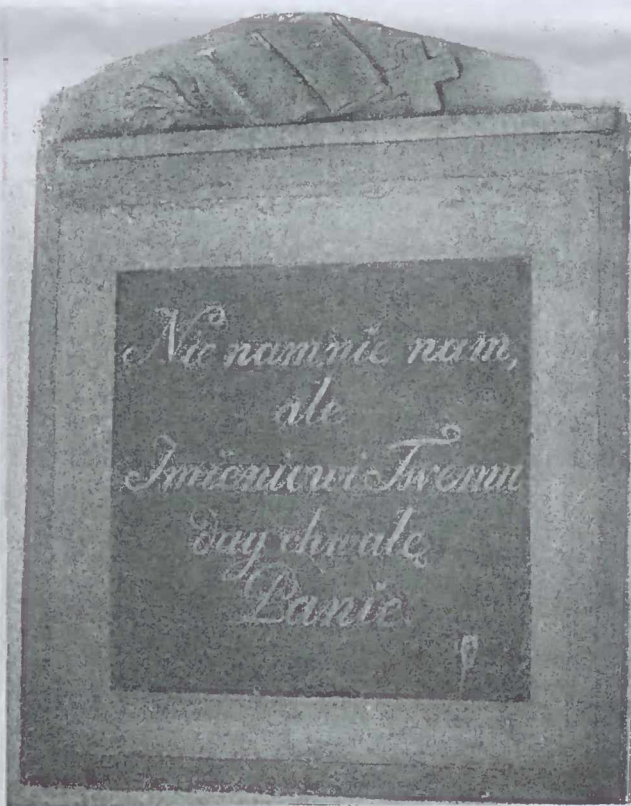 Nie nam nie nam,
ale
Imieniewi Twemu
day chwałę
Panie